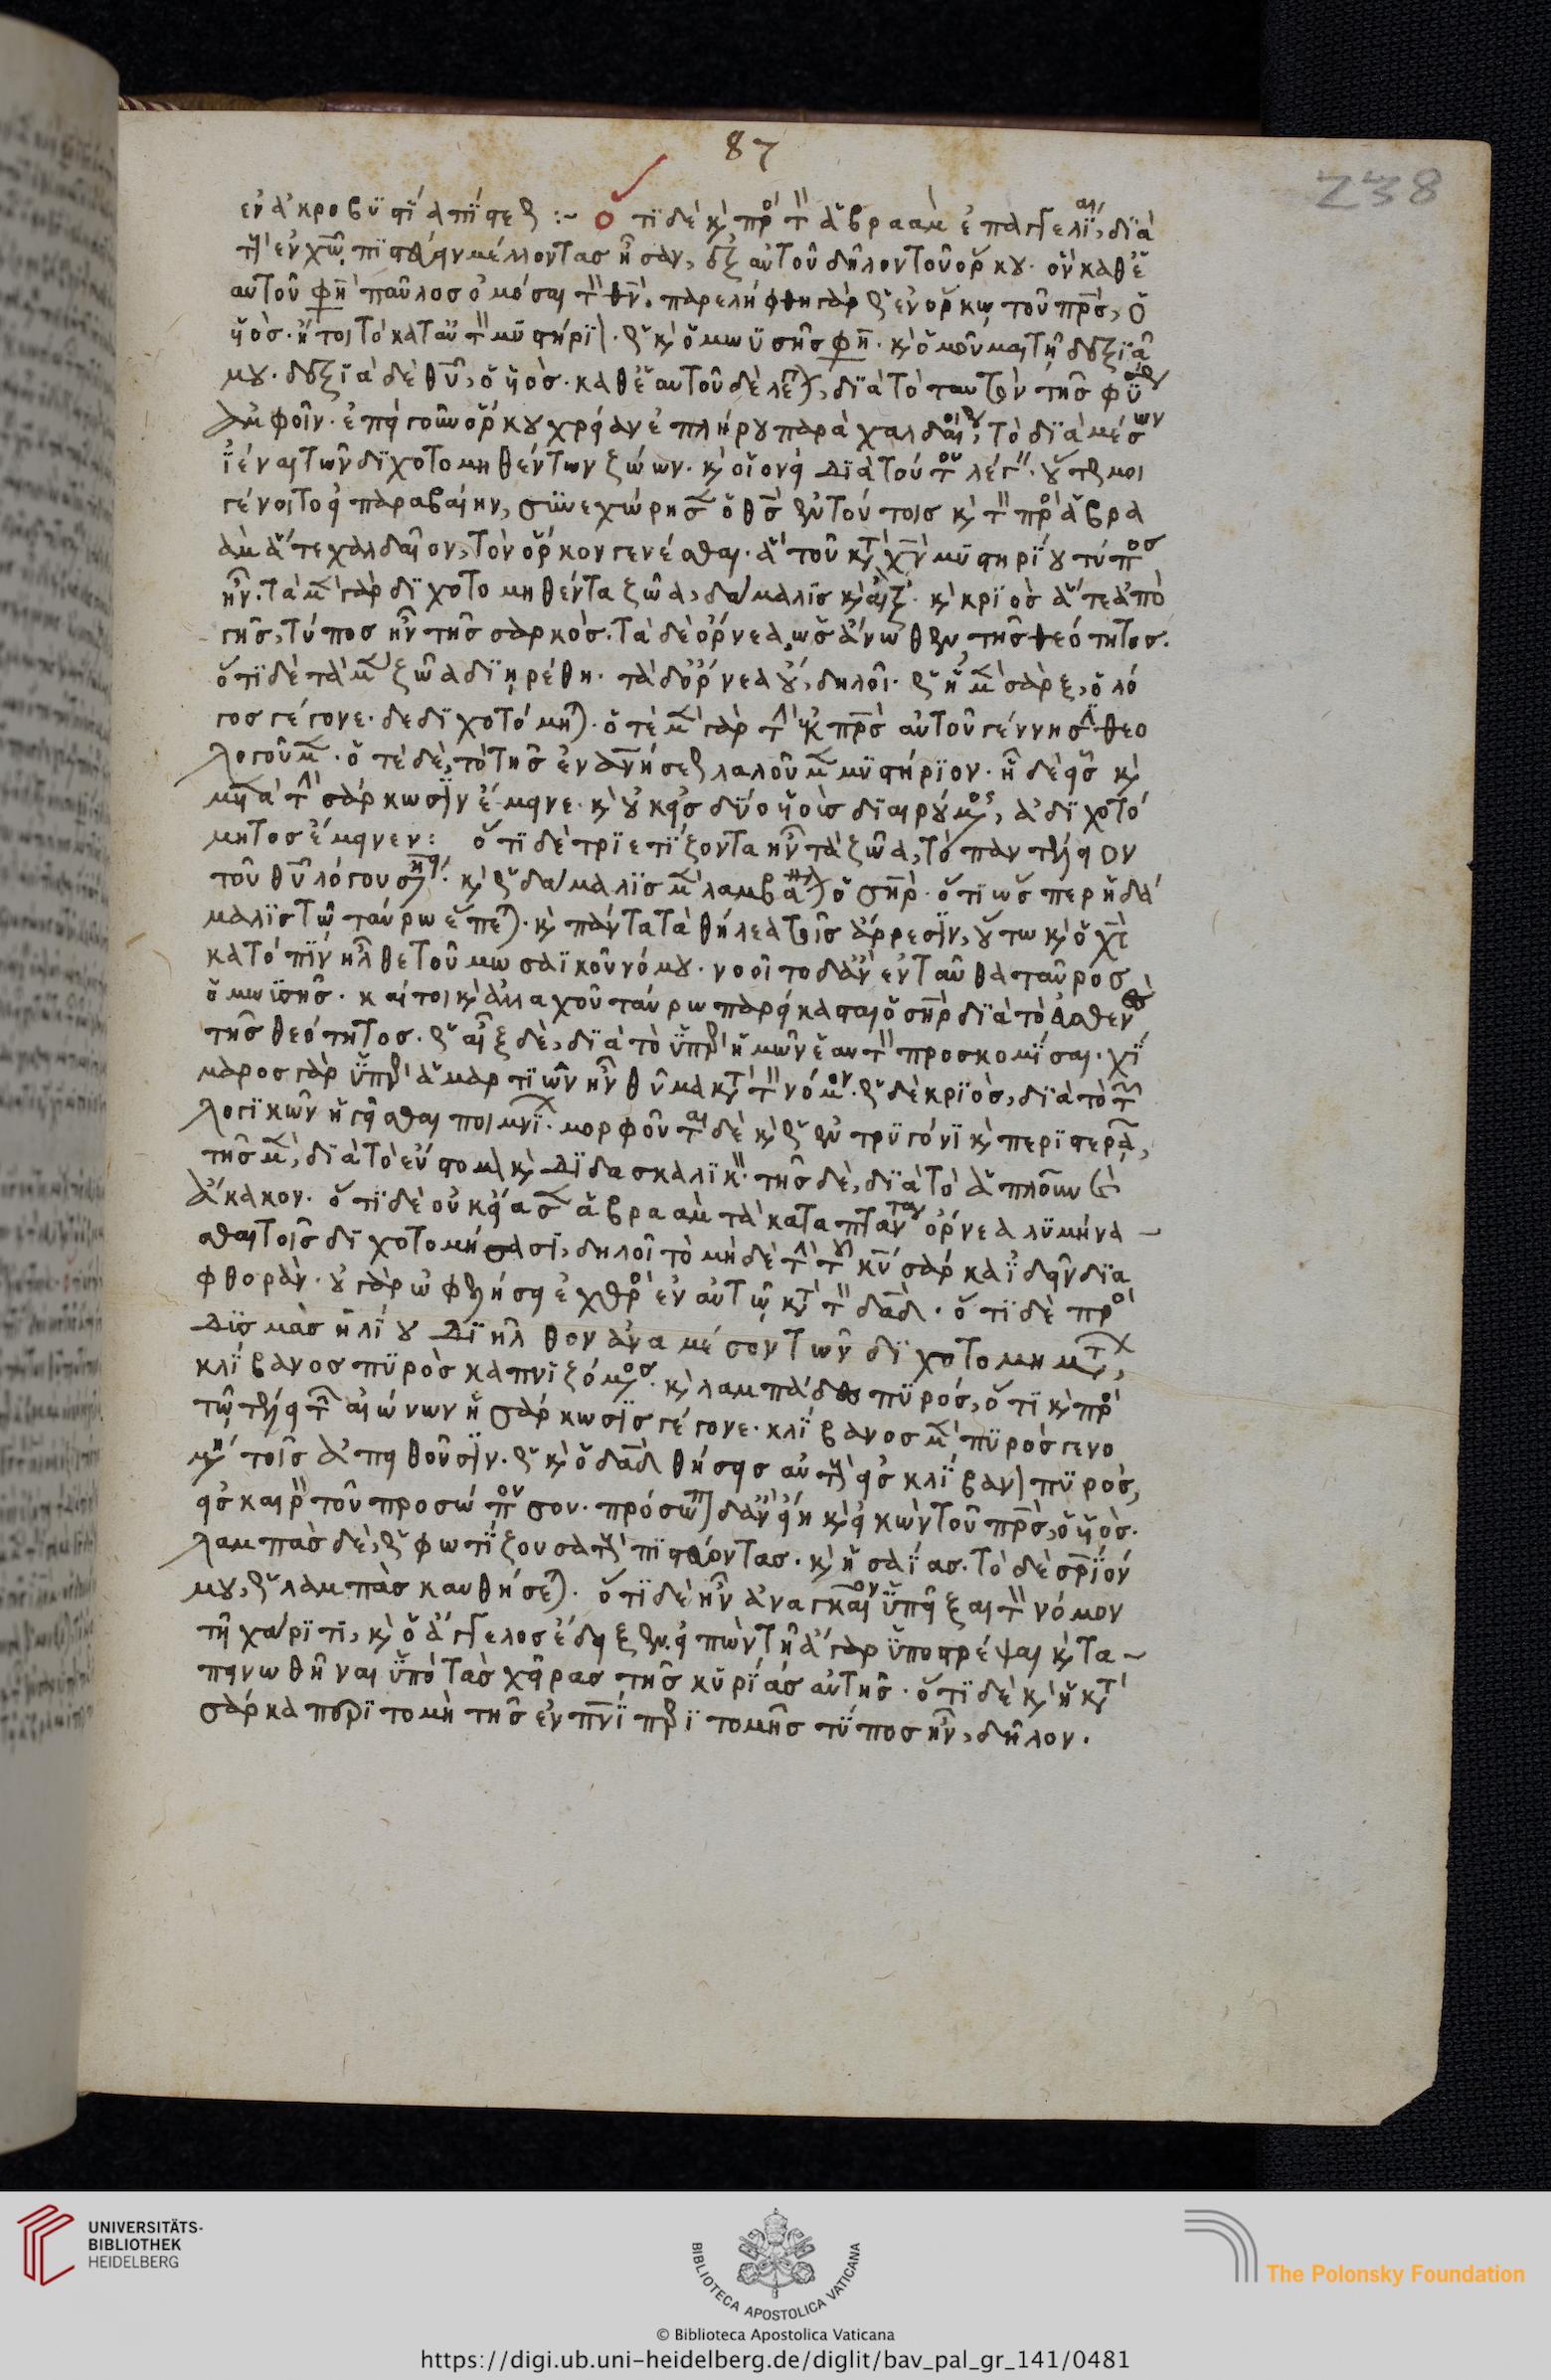 87
238
ἐν ἀκροβυστία πίστεως :~ Ὅτι δὲ καὶ πρὸς τὸν ἀβραὰμ ἐπαγγελίαι, διὰ
τοὺς ἐν χω πιστεύειν μέλλοντας ἦσαν, δεῖξ αὐτοῦ δῆλον τοῦ ὅρκου. ὃν καθ' ἑ
αυτοῦ φησὶ παῦλος ὀμόσαι τὸν θν. παρελήφθη γὰρ ἐν ὅρκω τοῦ πρς, ὁ
υἱός. ἤτοι τὸ κατ' αὐτὸν μυστήριον. καὶ ὁ μωϋσῆς φησί. καὶ ὀμοῦμαι τῆ δεξιᾶ
μου. δεξιὰ δὲ θυ, ὁ υἱός. καθ' ἑαυτοῦ δὲ λέγεται, διὰ τὸ ταυτὸν τῆς φύσεως
ἀμφοῖν. ἐπεὶ γοῦν ὅρκου χρείαν ἐπλήρου παρὰ χαλδαίοις, τὸ διὰ μέσων
ἰέναι τῶν διχοτομηθέντων ζώων. καὶ οἱονεὶ διὰ τούτου λέγειν. οὕτως μοι
γένοιτο εἰ παραβαίην, συνεχώρησεν ὁ θς ἐν τούτοις καὶ τὸν πρὸς ἀβρα
ὰμ ἅτε χαλδαῖον, τὸν ὅρκον γενέσθαι. ἃ τοῦ κατὰ χν μυστηρίου τύπος
ἦν. τὰ μὲν γὰρ διχοτομηθέντα ζῶα, δάμαλις καὶ αἲξ. καὶ κριὸς ἅτε ἀπὸ
γῆς, τύπος ἦν τῆς σαρκός. τὰ δὲ ὄρνεα, ὡς ἄνωθεν, τῆς θεότητος.
ὅτι δὲ τὰ μὲν ζῶα διηρέθη. τὰ δ' ὄρνεα οὔ, δηλοῖ. ὡς ἡ μὲν σὰρξ, ὁ λό
γος γέγονε. δεδιχοτόμηται. ὅτε μὲν γὰρ τὴν ἐκ πρς αὐτοῦ γέννησιν θεο
λογοῦμεν. ὅτε δὲ, τὸ τῆς ἐνανήσεως λαλοῦμεν μυστήριον. ἡ δὲ εἷς καὶ
μετὰ τὴν σάρκωσιν ἔμεινε. καὶ οὐκ εἰς δύο υἱοὺς διαιρούμενος, ἀδιχοτό
μητος ἔμεινεν: ὅτι δὲ τριετίζοντα ἦν τὰ ζῶα, τὸ παντέλειον
τοῦ θυ λόγου σημαίνει. καὶ δάμαλις μὲν λαμβάνεται ὁ σηρ. ὅτι ὥσπερ ἡ δά
μαλις τῶ ταύρω ἕπεται. καὶ πάντα τὰ θήλεα τοῖς ἄρρεσιν, οὕτω καὶ ὁ χς
κατόπιν ἦλθε τοῦ μωσαϊκοῦ νόμου. νοοῖτο δ' ἂν ἐνταῦθα ταῦρος
ὁ μωϊσῆς. καίτοι καὶ ἀλλαχοῦ ταύρω παρείκασται ὁ σηρ διὰ τὸ εὐσθενὲς
τῆς θεότητος. αἲξ δὲ, διὰ τὸ ὑπὲρ ἡμῶν ἑαυτὸν προσκομίσαι. χί
μαρος γὰρ ὑπὲρ ἁμαρτιῶν ἦν θῦμα κατὰ τὸν νόμον. δὲ κριὸς, διὰ τὸ τῶν
λογικῶν ἡγεῖσθαι ποιμνίων. μορφοῦται δὲ καὶ ἐν τρυγόνι καὶ περιστερᾶ,
τῆς μὲν, διὰ τὸ εὔστομον καὶ διδασκαλικόν. τῆς δὲ, διὰ τὸ ἁπλοῦν καὶ
ἄκακον. ὅτι δὲ οὐκ εἴασεν ἀβραὰμ τὰ καταπτάντα ὄρνεα λυμήνα
σθαι τοῖς διχοτομήσασι, δηλοῖ τὸ μηδὲ τὴν τοῦ κυ σάρκα ἰδεῖν δια
φθοράν. οὐ γὰρ ὠφελήσει ἐχθρὸς ἐν αὐτῶ κατὰ τὸν δαδ. ὅτι δὲ πρὸς
δυσμὰς ἡλίου διῆλθον ἀνὰ μέσον τῶν διχοτομημάτων,
κλίβανος πυρὸς καπνιζόμενος. καὶ λαμπάδες πυρός, ὅτι καὶ πρὸς
τῶ τέλει τῶν αἰώνων ἡ σάρκωσις γέγονε. κλίβανος μὲν πυρὸς γενο
μένη τοῖς ἀπειθοῦσιν. καὶ ὁ δαδ θήσεις αὐτοὺς εἰς κλίβανον πυρός,
εἰς καιρὸν τοῦ προσώπου σου. πρόσωπον δ' ἂν εἴη καὶ εἰκὼν τοῦ πρς, ὁ υἱός.
λαμπὰς δὲ, φωτίζουσα τοὺς πιστεύοντας. καὶ ἡσαΐας. τὸ δὲ σριόν
μου, ὡς λαμπὰς καυθήσεται. ὅτι δὲ ἦν ἀναγκαῖον ὑπεῖξαι τὸν νόμον
τῆ χάριτι, καὶ ὁ ἄγγελος ἔδειξεν. εἰπὼν τῆ ἄγαρ ὑποστρέψαι καὶ τα~
πεινωθῆναι ὑπὸ τὰς χεῖρας τῆς κυρίας αὐτῆς. ὅτι δὲ καὶ ἡ κατὰ
σάρκα περιτομὴ τῆς ἐν πνι περιτομῆς τύπος ἦν, δῆλον.
UNIVERSITÄTS-
BIBLIOTHEK
HEIDELBERG
BIBLIOTECA APOSTOLICA VATICANA
The Polonsky Foundation
© Biblioteca Apostolica Vaticana
https://digi.ub.uni-heidelberg.de/diglit/bav_pal_gr_141/0481